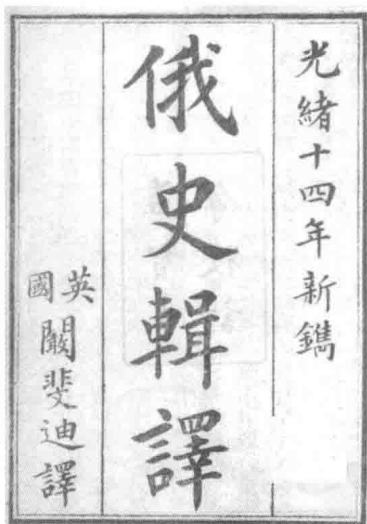 光緒十四年新鐫
俄史輯譯
英國闞斐迪譯